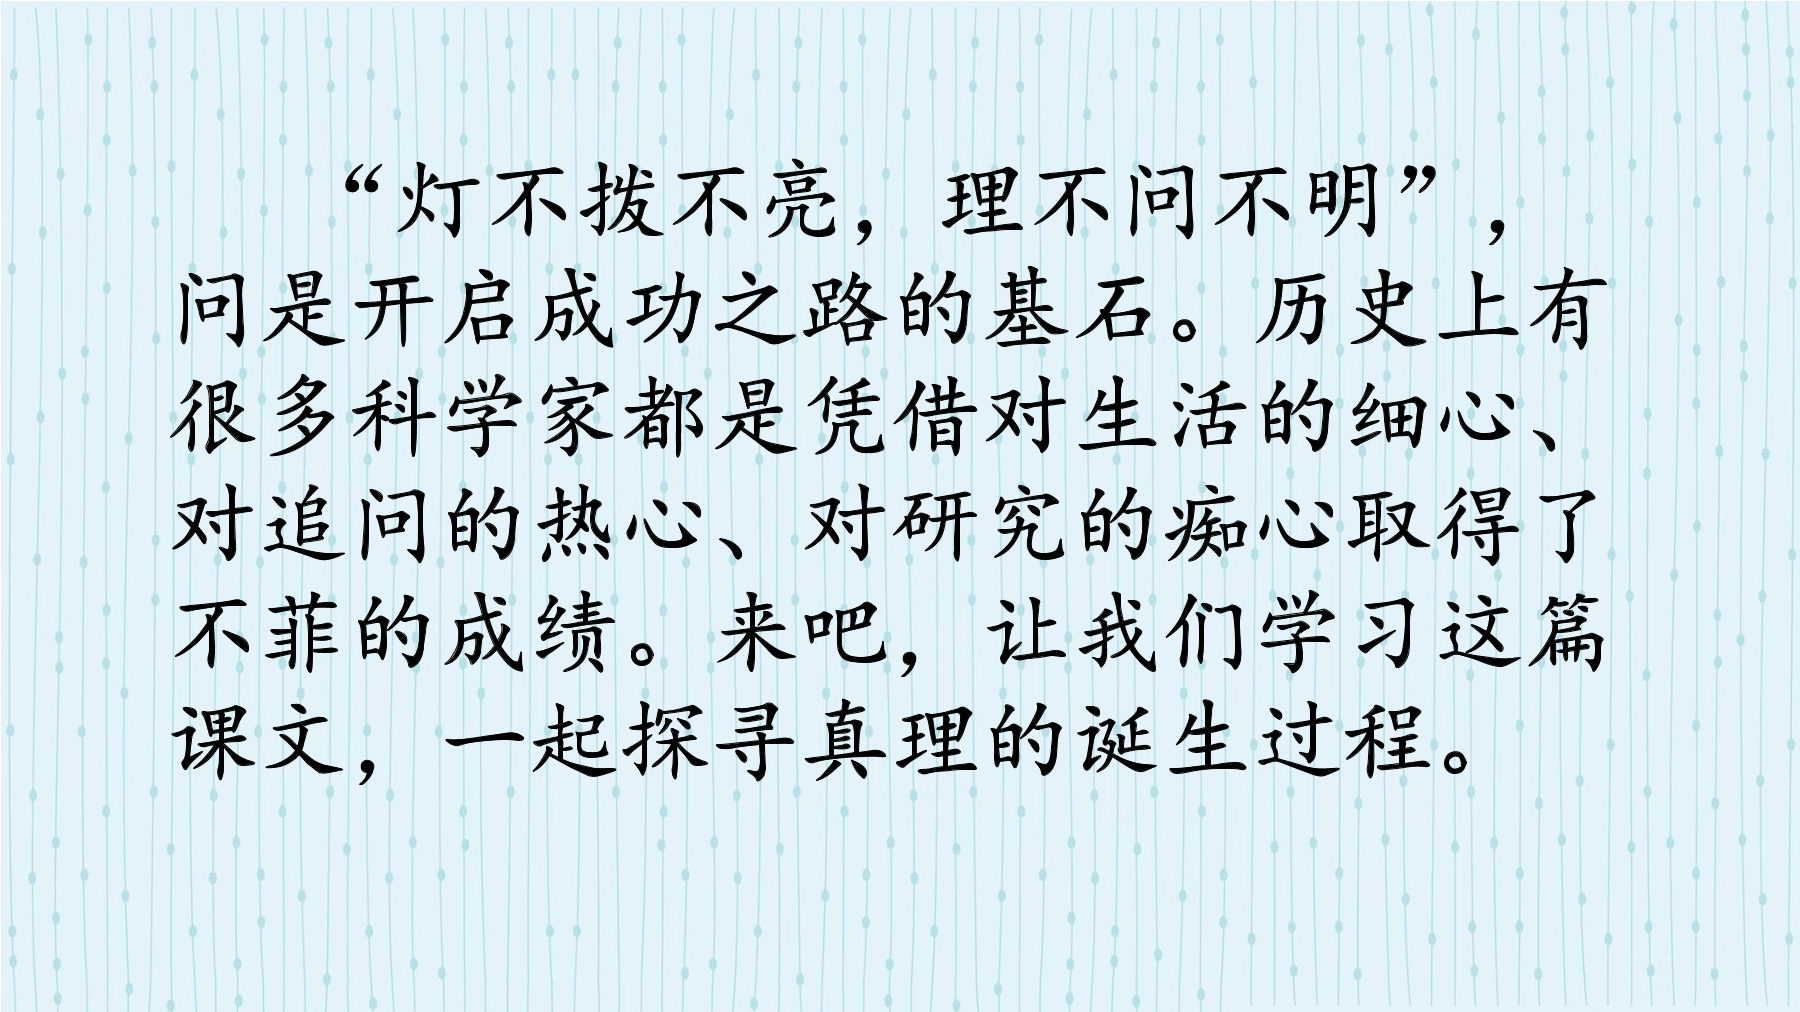 “灯不拨不亮，理不问不明”，
问是开启成功之路的基石。历史上有
很多科学家都是凭借对生活的细心、
对追问的热心、对研究的痴心取得了
不菲的成绩。来吧，让我们学习这篇
课文，一起探寻真理的诞生过程。